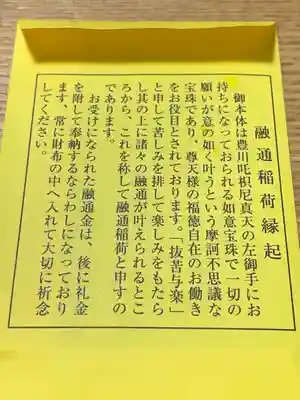 融通稲荷縁起
御本体は豊川吒枳尼真天の左御手にお
持ちになっておられる如意宝珠で一切の
願いが意の如く叶うという摩訶不思議な
宝珠であり、尊天様の福徳自在のお働き
をお役目とされております。「抜苦与楽」
と申して苦しみを排して楽しみをもたら
し其の上に諸々の融通が叶えられるとこ
ろから、これを称して融通稲荷と申すの
であります。
お受けになられた融通金は、後に礼金
を附して奉納するならわしになっており
ます、常に財布の中へ入れて大切に祈念
してください。